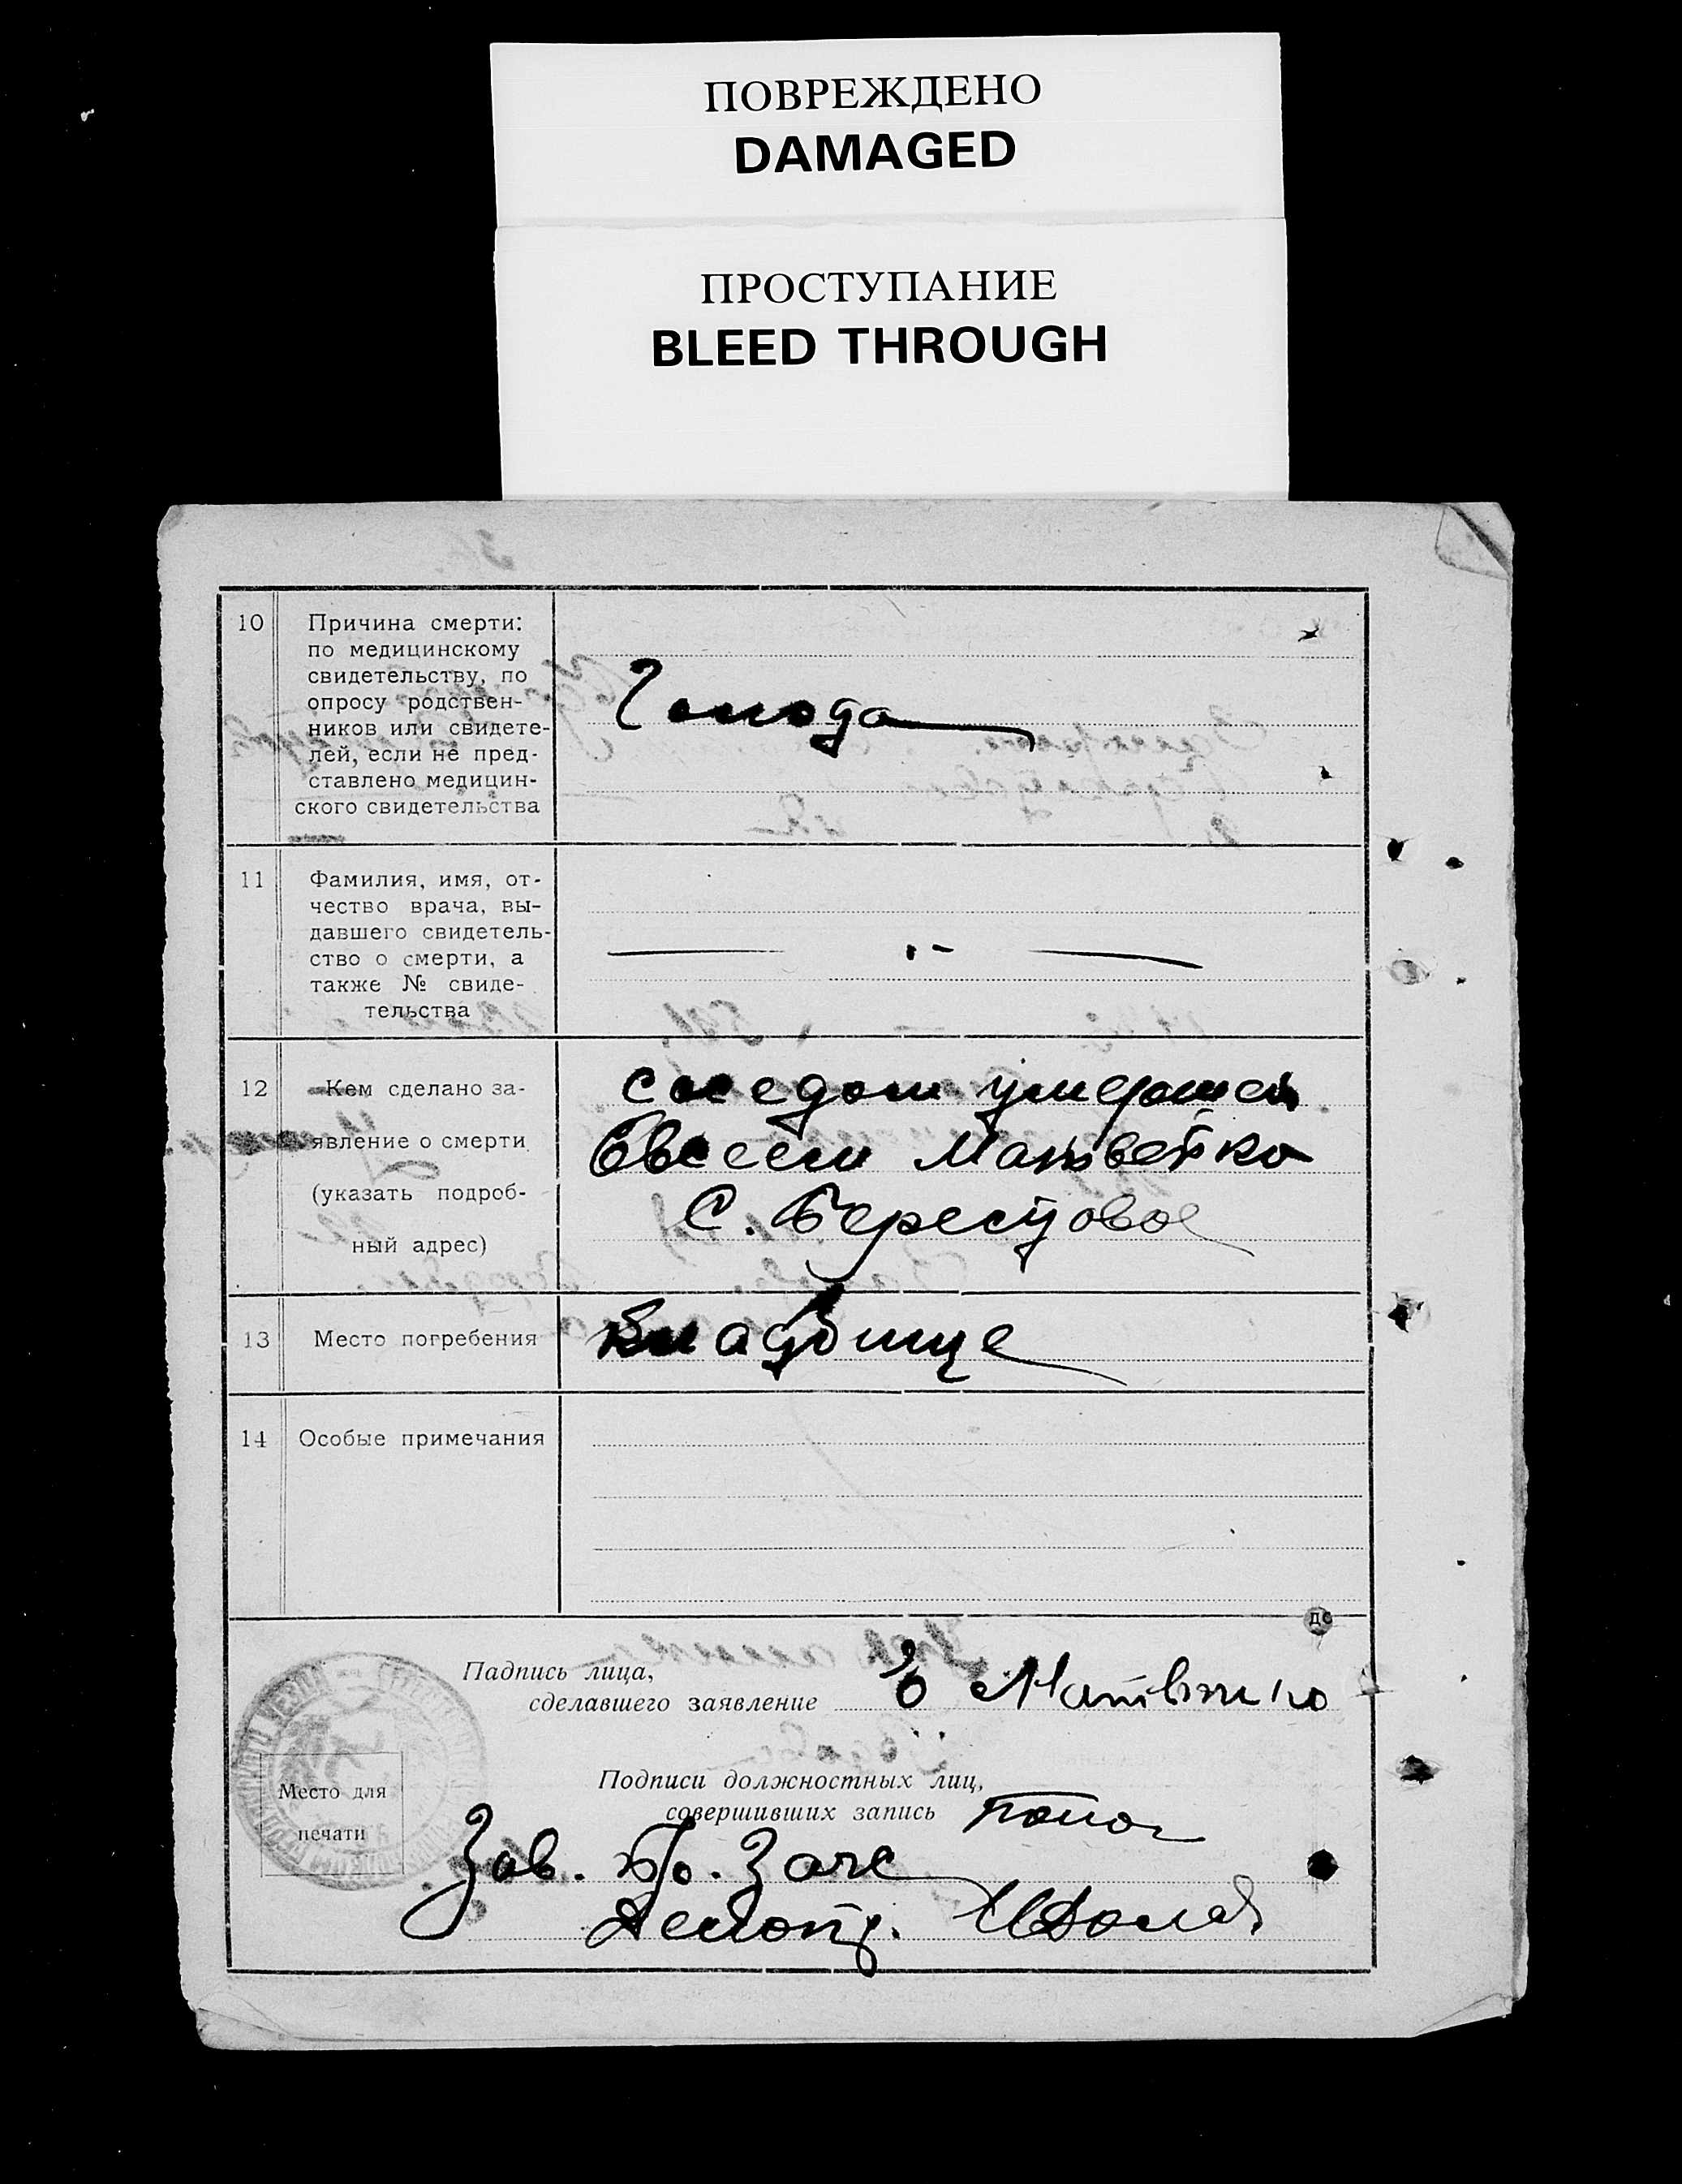 ПОВРЕЖДЕНО
DAMAGED
ПРОСТУПАНИЕ
BLEED THROUGH
10
Причина смерти:
по медицинскому
свидетельству, по
опросу родствен-
ников или свидете-
лей, если не пред-
ставлено медицин-
ского свидетельства
Голода
11
Фамилия, имя, от-
чество врача, вы-
давшего свидетель-
ство о смерти, а
также № свиде-
тельства
12
Кем сделано за-
явление о смерти
(указать подроб-
ный адрес)
соседом умершей
Евсеем Матвейко
С. Берестовое
13
Место погребения
Кладбище
14
Особые примечания
Падпись лица,
сделавшего заявление
Е Матвийко
Подписи должностных лиц,
совершивших запись
Место для
печати
Зав. Загс